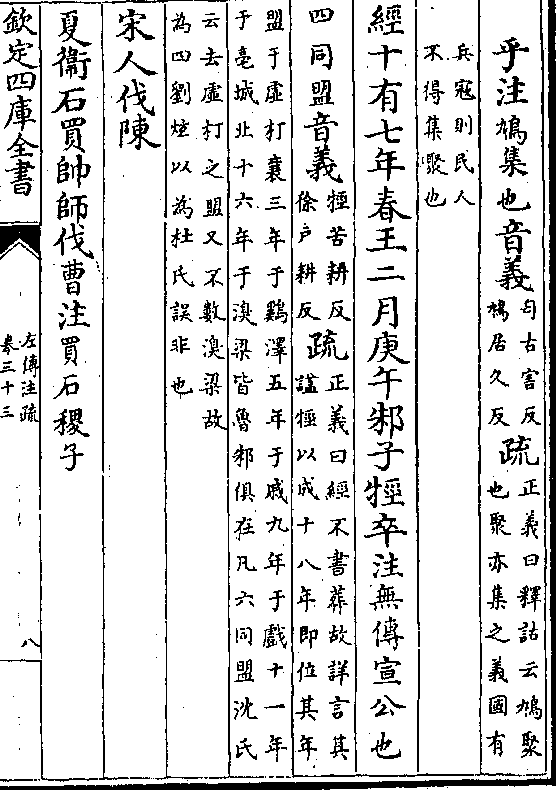 乎注鳩集也音義匄古害反鳩居久反疏正義曰釋詁云鳩聚也聚亦集之義國有
兵寇則民人不得集聚也
經十有七年春王二月庚午邾子牼卒注無傳宣公也
四同盟音義牼苦耕反徐戶耕反疏正義曰經不書葬故詳言其諡牼以成十八年即位其年
盟于虛朾襄三年于鷄澤五年于戚九年于戲十一年于亳城北十六年于湨梁皆魯邾俱在凡六同盟沈氏
云去虛朾之盟又不數湨梁故為四劉炫以為杜氏誤非也
宋人伐陳
夏衞石買帥師伐曹注買石稷子
欽定四庫全書
左傳注疏
卷三十三
八